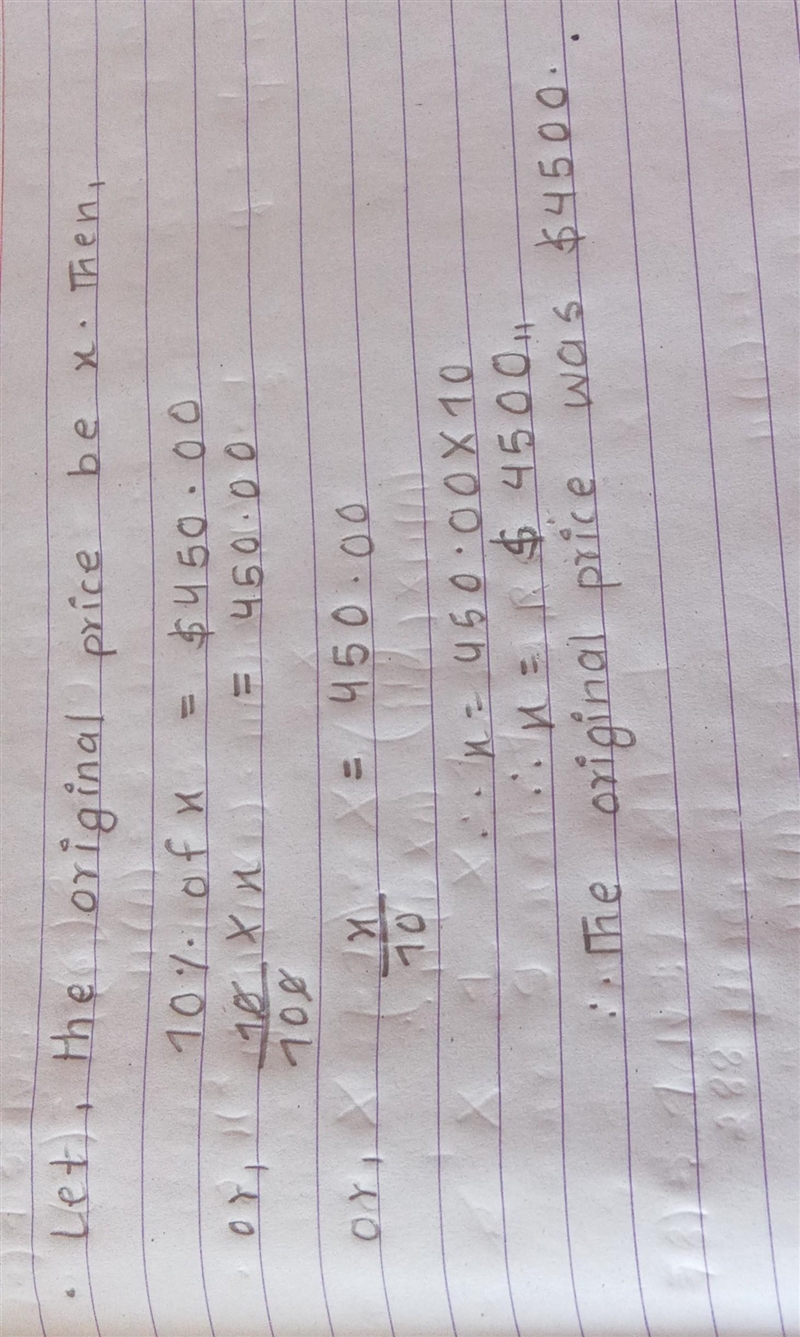 . Let, the original price be x. Then,
10% of x = $450.00
or, 10/100 × x = 450.00
or, x/10 = 450.00
∴ x = 450.00 × 10
∴ x = $ 4500,,
∴ The original price was $4500.